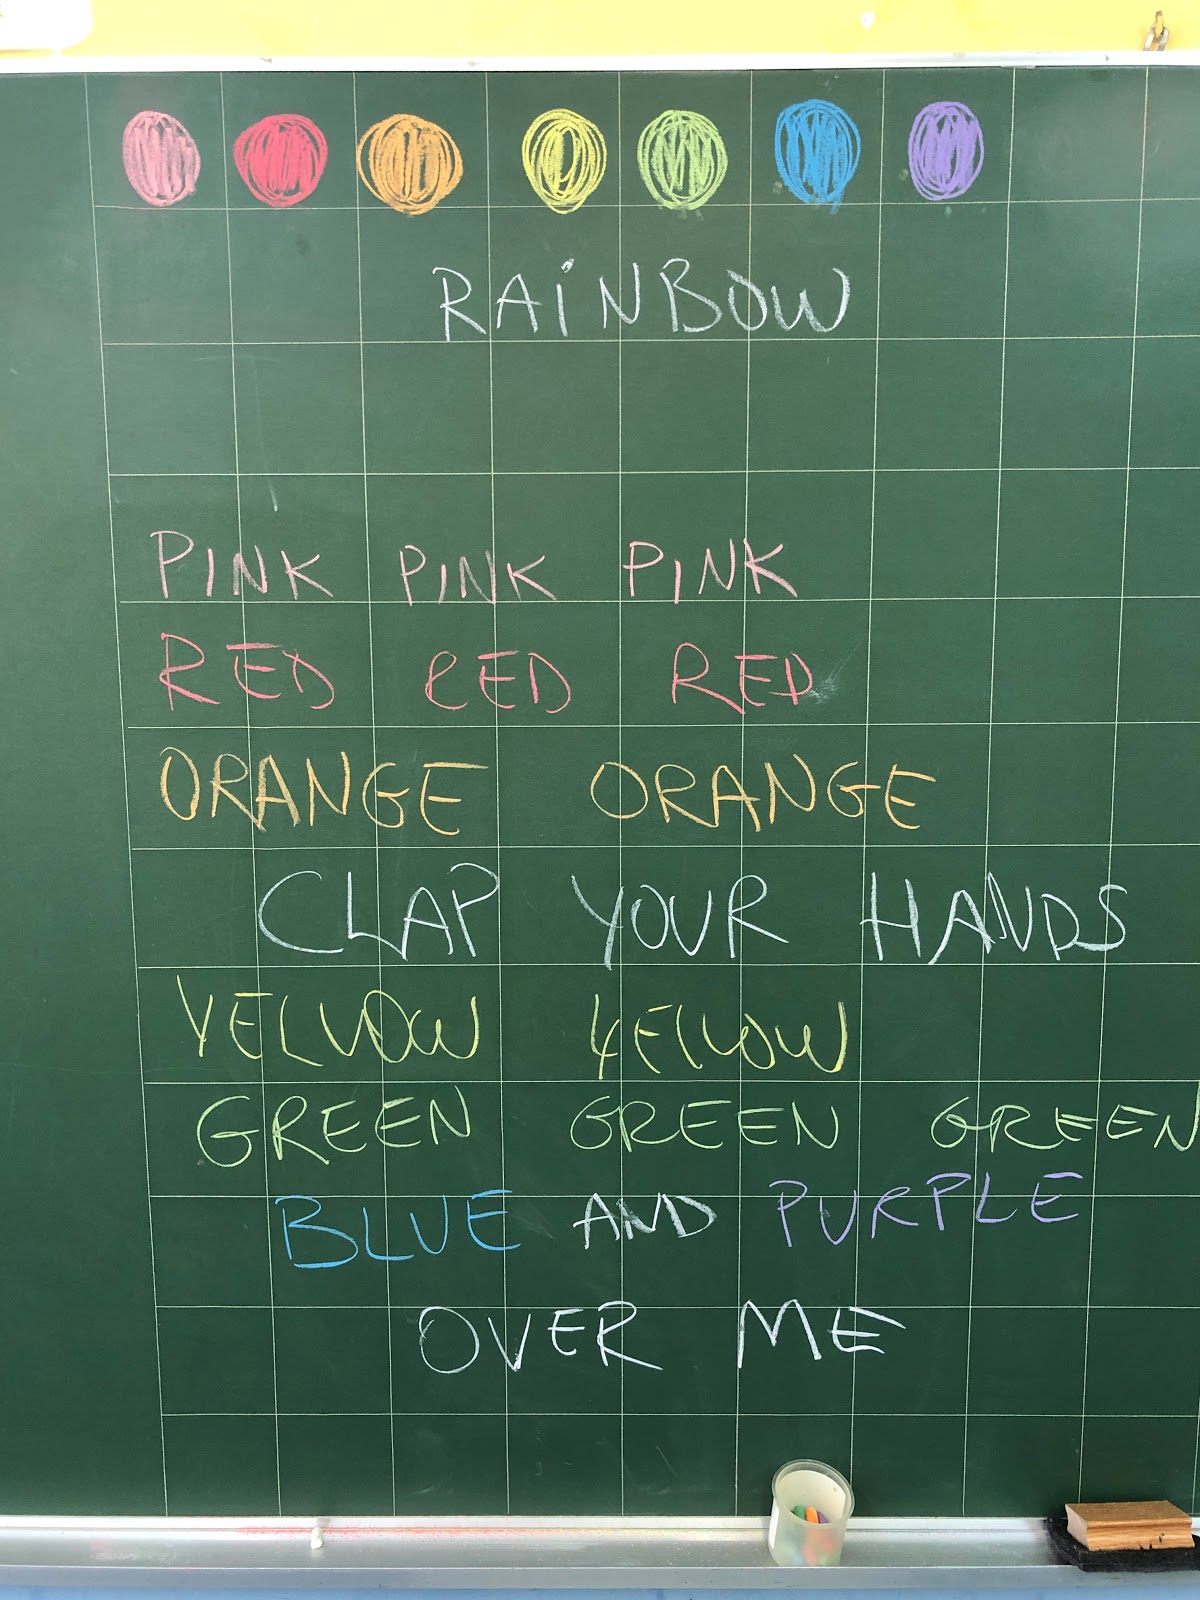 RAiNBOW
PINK PINK PINK
RED RED RED
ORANGE ORANGE
CLAP YOUR HANDS
YELLOW YELLOW
GREEN GREEN GREEN
BLUE AND PURPLE
OVER ME